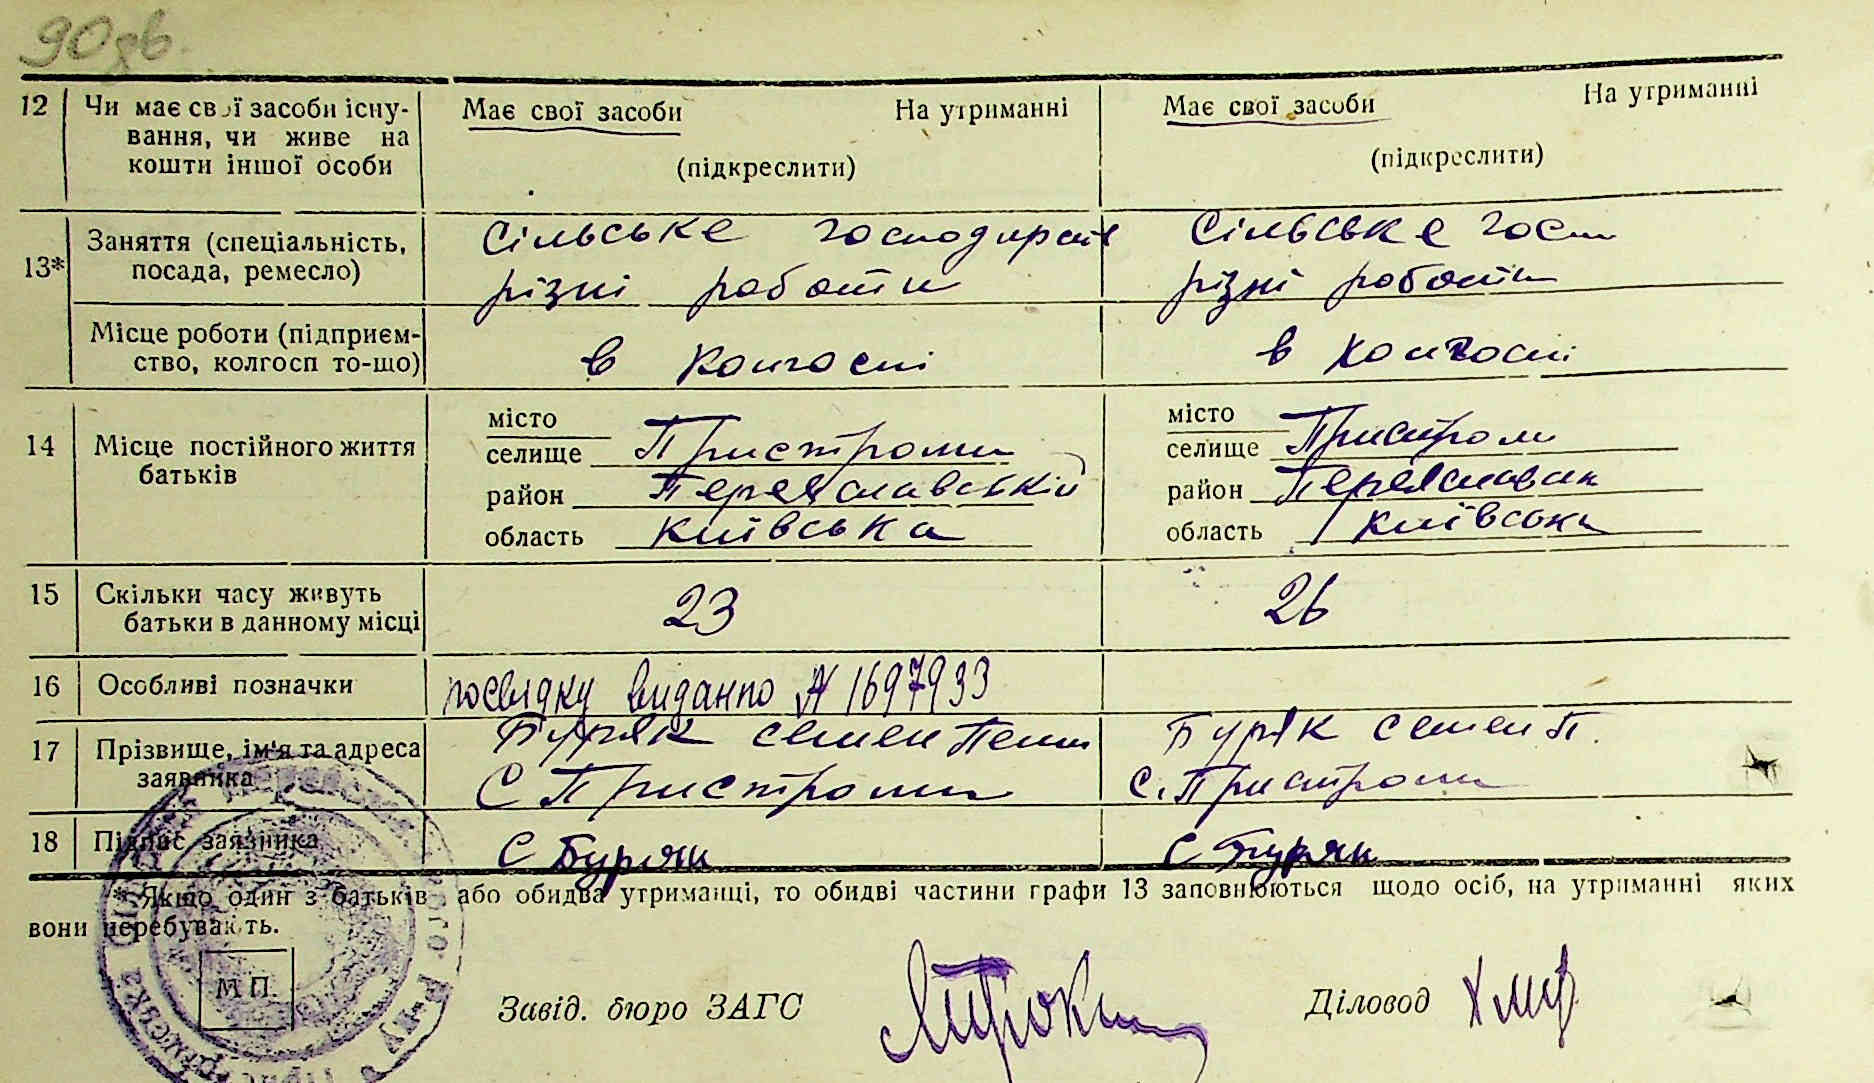 90зв.
12 Чи має свої засоби існу- Має свої засоби На утриманні Має свої засоби На утриманні
вання, чи живе на
кошти іншої особи (підкреслити) (підкреслити)
13* Заняття (спеціальність, Сільське господарст Сільське госп
посада, ремесло) різні роботи різні роботи
Місце роботи (підприєм-
ство, колгосп то-що) в колгоспі в колгоспі
місто місто
14 Місце постійного життя селище Пристроми селище Пристроми
батьків район Переяславський район Переяславськ
область Київська область Київська
15 Скільки часу живуть 23 26
батьки в данному місці
16 Особливі позначки посвідку видано № 1697933
17 Прізвище, ім'я та адреса Буряк Семен Буряк Семен П.
заявника С Пристроми С. Пристроми
18 Підпис заявника С Буряк С Буряк
* Якщо один з батьків або обидва утриманці, то обидві частини графи 13 заповнюються щодо осіб, на утриманні яких
вони перебувають.
М П
Завід. бюро ЗАГС Діловод